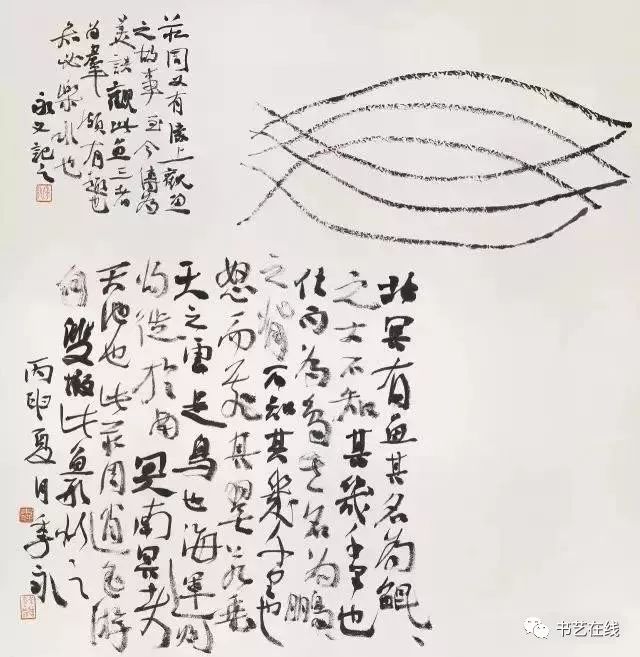 北冥有魚其名為鯤、
之大不知其幾千里也
化而為鳥其名為鵬、
之背不知其幾千里也
怒而飛其翼若垂
天之雲是鳥也海運則
將徙於南冥南冥者
天池也此莊周逍遙游
句雙此魚形之
丙申夏月季永
莊周又有濠上觀魚
之故事至今傳為
美談觀此魚三者
為羣頗有趣也
必樂水也
永又記之
书艺在线